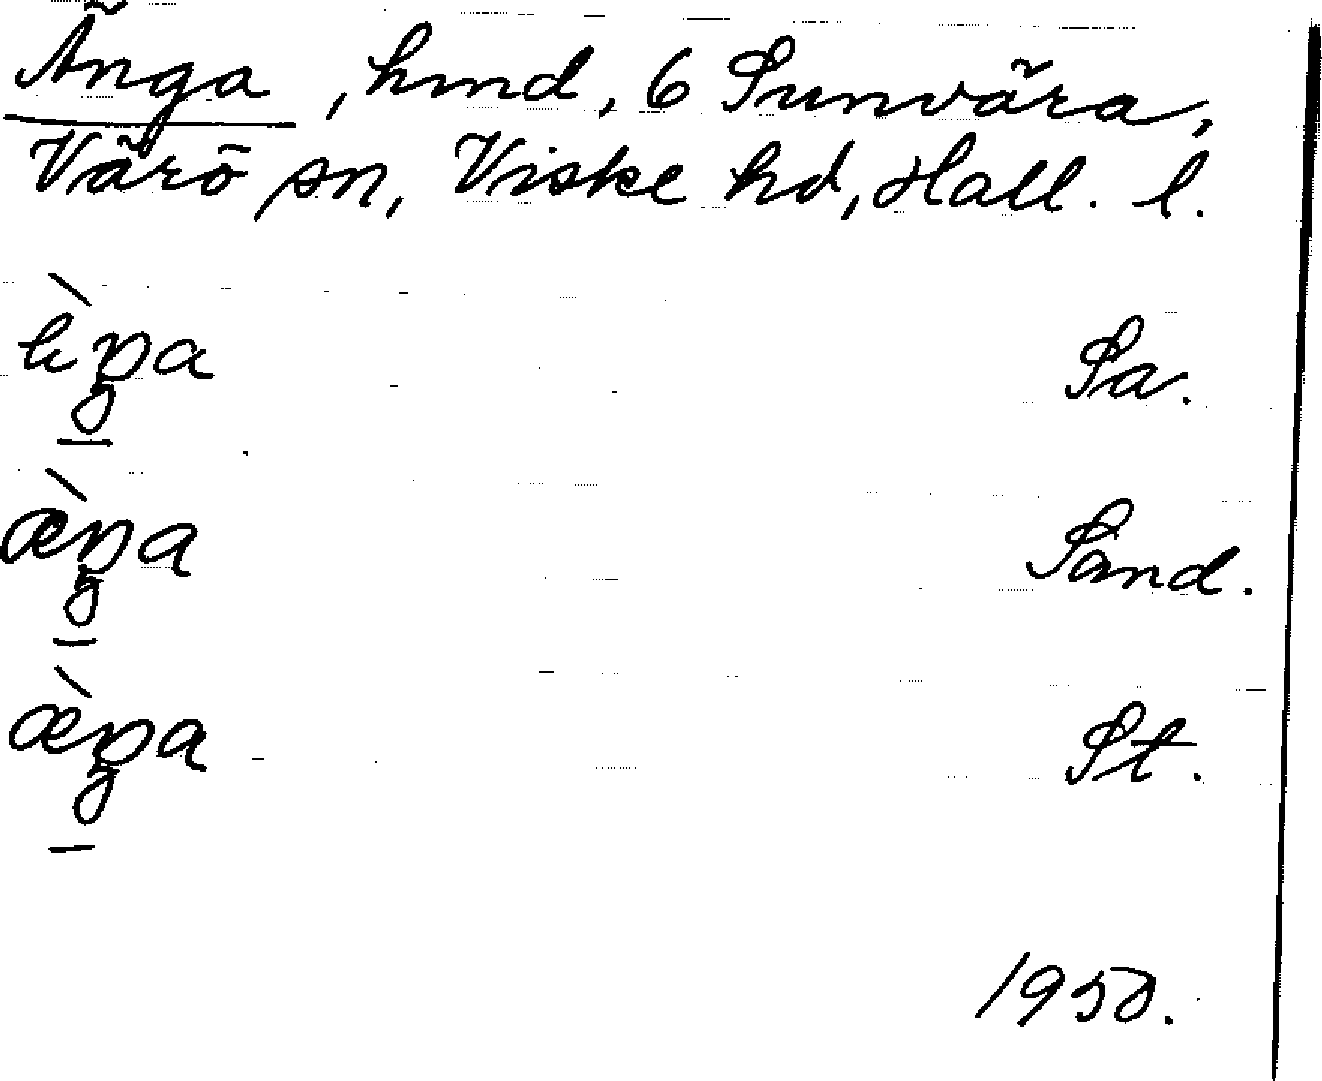 Änga, hmd, 6 Sunvära,
Värö sn, Viske hd, Hall. l.
Sa.
æ̀ŋa Sand.
æ̀ŋa St.
1950.